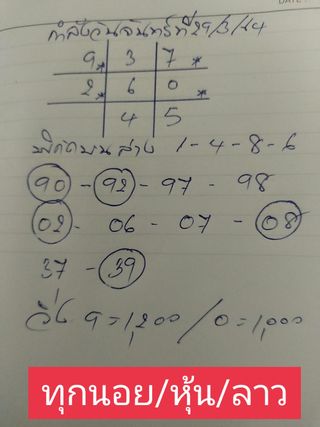 กำลังวันจันทร์ที่ 29/3/64
9* 3 7*
2* 6 0*
4 5
พิกัดบน ล่าง 1-4-8-6
90 - 92 - 97 - 98
02 - 06 - 07 - 08
37 - 39
วิ่ง 9=1,200 / 0=1,000
ทุกนอย/หุ้น/ลาว